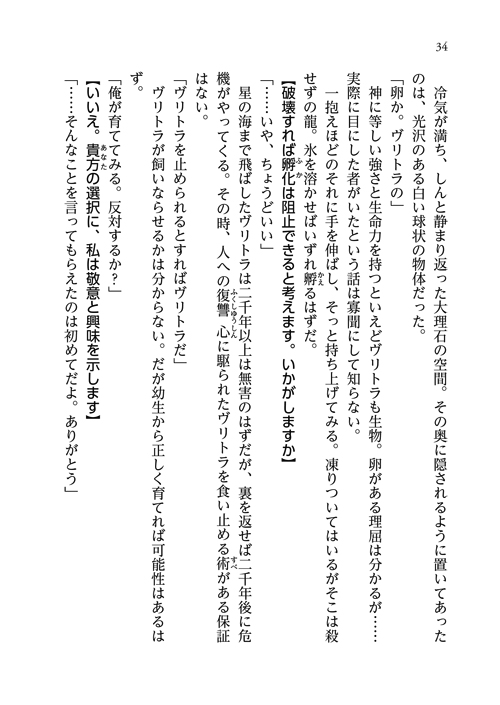 34
　冷気が満ち、しんと静まり返った大理石の空間。その奥に隠されるように置いてあった
のは、光沢のある白い球状の物体だった。
「卵か。ヴリトラの」
　神に等しい強さと生命力を持つといえどヴリトラも生物。卵がある理屈は分かるが……
実際に目にした者がいたという話は寡聞にして知らない。
　一抱えほどのそれに手を伸ばし、そっと持ち上げてみる。凍りついてはいるがそこは殺
せずの龍。氷を溶かせばいずれ孵るはずだ。
【破壊すれば孵化は阻止できると考えます。いかがしますか】
「……いや、ちょうどいい」
　星の海まで飛ばしたヴリトラは二千年以上は無害のはずだが、裏を返せば二千年後に危
機がやってくる。その時、人への復讐心に駆られたヴリトラを食い止める術がある保証
はない。
「ヴリトラを止められるとすればヴリトラだ」
　ヴリトラが飼いならせるかは分からない。だが幼生から正しく育てれば可能性はあるは
ず。
「俺が育ててみる。反対するか？」
【いいえ。貴方の選択に、私は敬意と興味を示します】
「……そんなことを言ってもらえたのは初めてだよ。ありがとう」